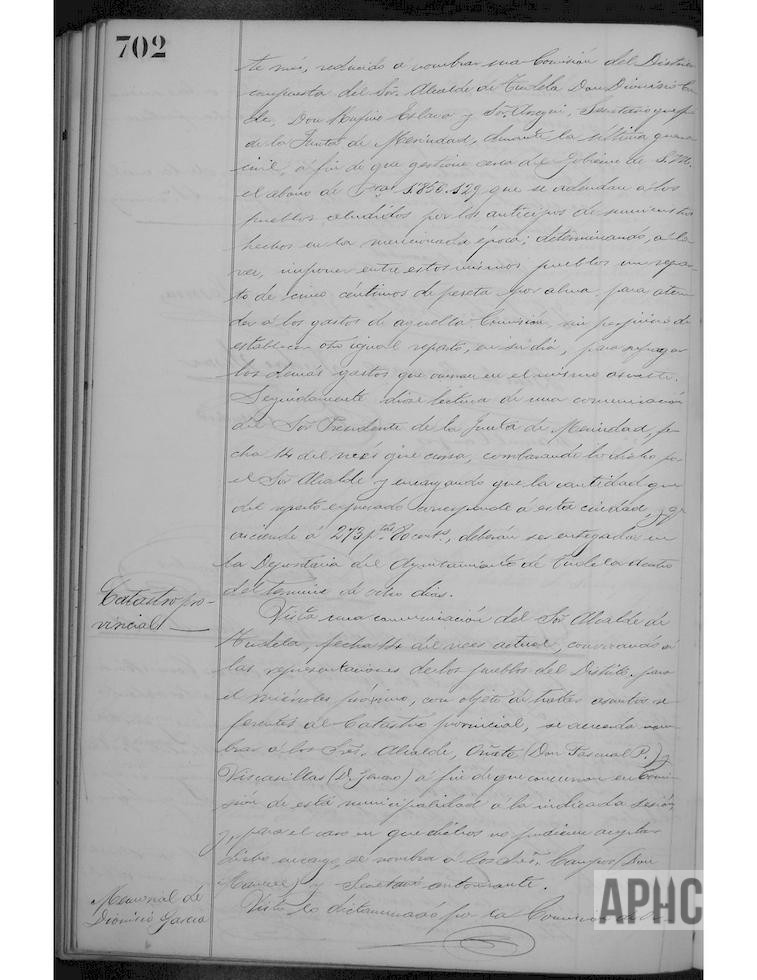 702
te mes, reducido á nombrar una Comisión del Distrito
compuesta del Sor. Alcalde de Tudela Don Dionisio
Don Rufino Eslava y Sor. Secretario que fué
de la Junta de Merindad, durante la última guerra
civil, á fin de que gestione cerca del Gobierno de S.M.
el abono de 1.856.129 que se adeudan a los
pueblos aludidos por los anticipos de suministros
hechos en la mencionada época; determinando, á la
vez, imponer entre estos mismos pueblos un repar-
to de cinco céntimos de peseta por alma, para aten-
der á los gastos de aquella Comisión, sin perjuicio de
establecer otro igual reparto, en su día, para sufragar
los demás gastos que ocurran en el mismo asunto.
Seguidamente diose lectura de una comunicación
del Sor. Presidente de la Junta de Merindad, fe-
cha 14 del mes que cursa, corroborando lo dicho por
el Sor. Alcalde y encargando que la cantidad que
del reparto expresado corresponde á esta ciudad, y que
asciende á 273 ptas 80 cents, deberán ser entregadas en
la Depositaria del Ayuntamiento de Tudela dentro
del termino de ocho dias.
Catastro pro-
vincial
Vista una comunicación del Sor. Alcalde de
Tudela, fecha 14 del mes actual, convocando á
las representaciones de los pueblos del Distrito para
el miércoles próximo, con objeto de tratar asuntos re-
ferentes al Catastro provincial, se acuerda nom-
brar á los Sres. Alcalde, Oñate (Don Pascual P.) y
Viscasillas (D. ) á fin de que concurran en Comi-
sión de esta municipalidad á la indicada sesión,
y, para el caso en que dichos no pudiesen aceptar
dicho encargo, se nombra á los Sres. Campos (Don
Manuel) y Secretario autorizante.
Memorial de
Dionisio Garcia
Visto lo dictaminado por la Comisión de
APHC